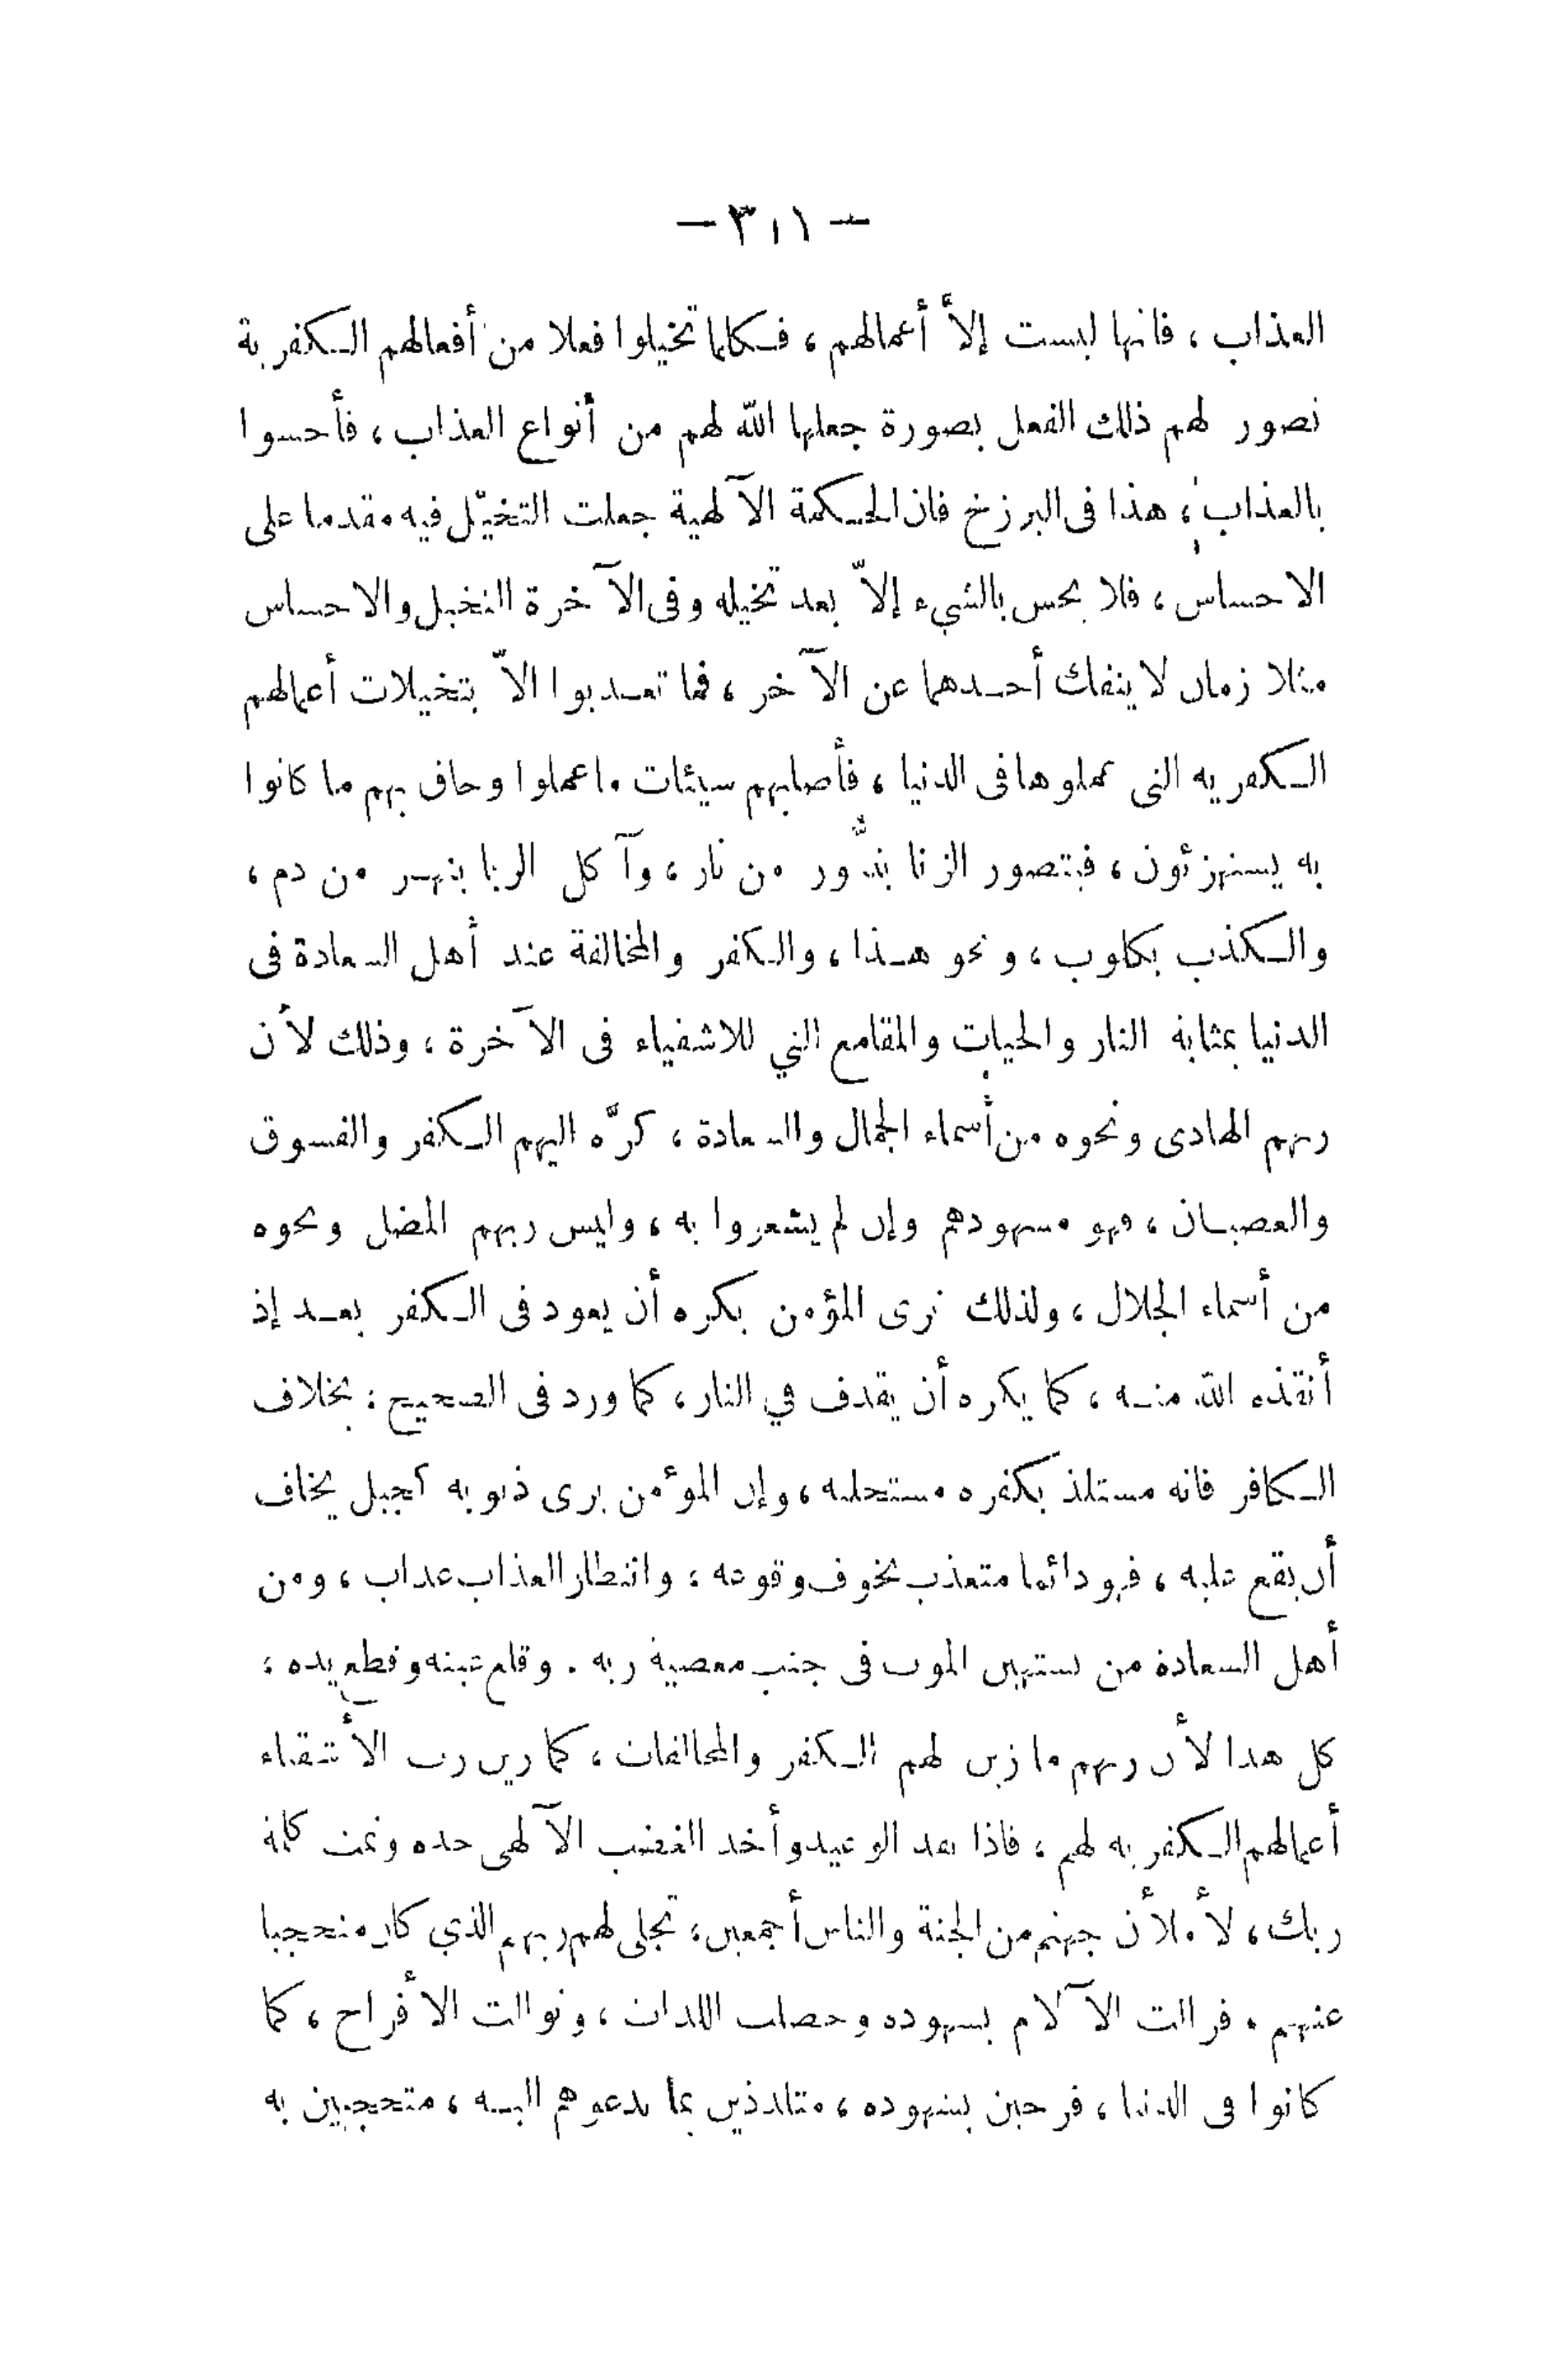 — ٣١١ —
العذاب ، فانها ليست إلاّ أعمالهم ، فكلما تخيلوا فعلا من أفعالهم الكفرية
تصور لهم ذلك الفعل بصورة جعلها الله لهم من أنواع العذاب ، فأحسوا
بالعذاب ، هذا فى البرزخ فان الحكمة الآلهية جعلت التخيّل فيه مقدما على
الاحساس ، فلا يحس بالشيء إلاّ بعد تخيله وفى الآخرة التخيل والاحساس
متلا زمان لا ينفك أحدهما عن الآخر ، فما تعذبوا الاّ بتخيلات أعمالهم
الكفرية التى عملوها فى الدنيا ، فأصابهم سيئات ما عملوا وحاق بهم ما كانوا
به يستهزئون ، فيتصور الزنا بتنُّور من نار ، وآكل الربا بنهر من دم ،
والكذب بكلوب ، ونحو هذا ، والكفر والمخالفة عند أهل السعادة فى
الدنيا بمثابة النار والحيات والمقامع التي للاشقياء فى الآخرة ، وذلك لأن
ربهم الهادى ونحوه من أسماء الجمال والسعادة ، كرَّه اليهم الكفر والفسوق
والعصيان ، فهو مشهودهم وإن لم يشعروا به ، وليس ربهم المضل ونحوه
من أسماء الجلال ، ولذلك ترى المؤمن يكره أن يعود فى الكفر بعد إذ
أنقذه الله منه ، كما يكره أن يقذف في النار ، كما ورد فى الصحيح : بخلاف
الكافر فانه مستلذ بكفره مستحليه ، وإن المؤمن يرى ذنوبه كجبل يخاف
أن يقع عليه ، فهو دائما متعذب بخوف وقوعه ، وانتظار العذاب عذاب ، ومن
أهل السعادة من يستهين الموت فى جنب معصية ربه . وقلع عينه وقطع يده ،
كل هذا لأن ربهم ما زين لهم الكفر والمخالفات ، كما زين رب الأشقياء
أعمالهم الكفرية لهم ، فاذا نفد الوعيد وأخذ الغضب الآلهى حده وتمت كلمة
ربك ، لأملأن جهنم من الجنة والناس أجمعين ، تجلى لهم ربهم الذي كان محتجبا
عنهم . فزالت الآلام بشهوده وحصلت اللذات ، وتوالت الأفراح ، كما
كانوا فى الدنيا ، فرحين بشهوده ، متلذذين بما يدعوهم اليه ، متحجبين به